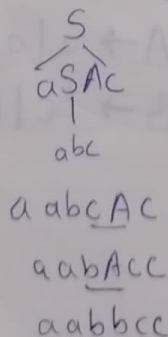 S
aSAc
abc
a abcAc
aabAcc
aabbcc